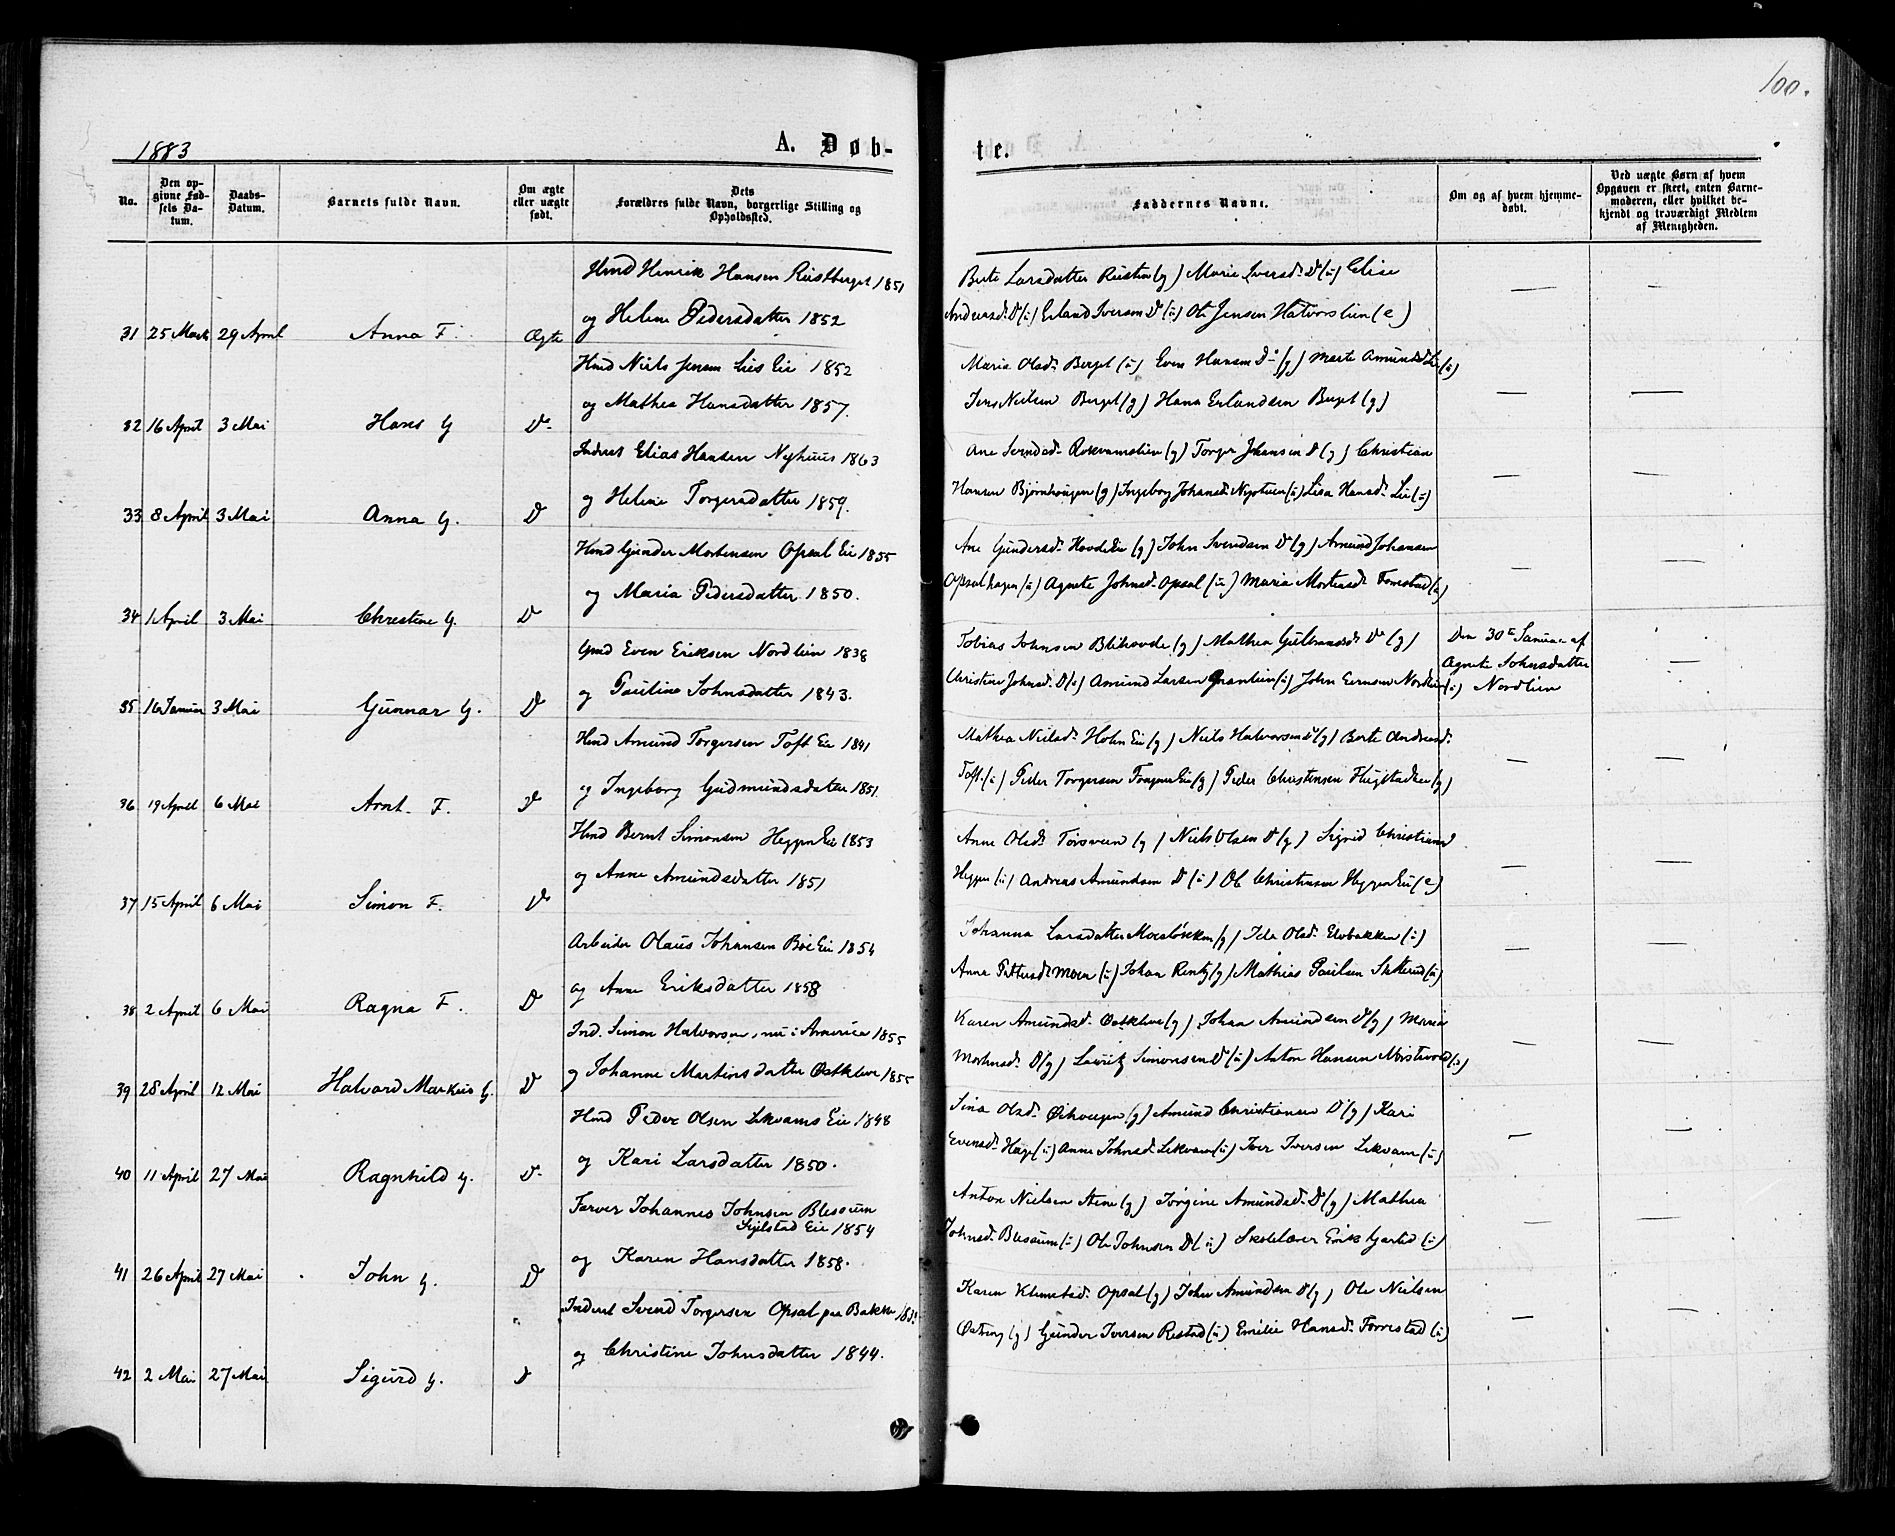 100.
1883
A. Døb-
te.
No.
Den op-
givne Fød-
sels Da-
tum.
Daabs-
Datum.
Barnets fulde Navn.
Om ægte
eller uægte
født.
Dets
Forældres fulde Navn, borgerlige Stilling og
Opholdssted.
Faddernes Navne.
Om og af hvem hjemme-
døbt.
Ved uægte Børn af hvem
Opgaven er skeet, enten Barne-
moderen, eller hvilket be-
kjendt og troværdigt Medlem
af Menigheden.
Hmd Henrik Hansen Rustberget 1851
og Helene Pedersdatter 1852
31 25 Marts 29 April Anna F. Ægte
Berte Larsdatter Rusten (g) Marie Iversd. Do (u) Elise
Andersd. Do (u) Erland Iversen Do (u) Ole Jensen Halvorslien (e)
— —
Hmd Niels Jensen Lies Eie 1852
og Mathea Hansdatter 1857.
32 16 April 3 Mai Hans G Do
Maria Olsd. Berget (u) Even Hansen Do (g) Marte Amundsd. Lie (u)
Jens Nielsen Berget (g) Hans Erlandsen Berget (g)
— —
Inderst Elias Hansen Nyhuus 1863
og Helene Torgersdatter 1859.
33 8 April 3 Mai Anna G. Do
Ane Svendsd. Rokvamslien (g) Torger Johansen Do (g) Christian
Hansen Bjørnhaugen (g) Ingeborg Johansd. (u) Lisa Hansd. Lie (u)
— —
Hmd Gunder Mortensen Opsal Eie 1855
og Maria Pedersdatter 1850.
34 1 April 3 Mai Christine G. Do
Ane Gundersd. Hovde Eie (g) John Svendsen Do (g) Amund Johansen
Opsalhagen (u) Agnete Johnsd. Opsal (u) Maria Mortensd. Forrestad (u)
— —
Gmd Even Eriksen Nordlien 1838
og Pauline Johnsdatter 1843.
35 16 Januar 3 Mai Gunnar G. Do
Tobias Johnsen Blihovde (g) Mathea Gulbrandsd. Do (g)
Christine Johnsd. Do (u) Amund Larsen Granlien (u) John Evensen Nordlien (u)
Den 30te Januar af
Agnete Johnsdatter
Nordlien
—
Hmd Amund Torgersen Toft Eie 1841
og Ingeborg Gudmundsdatter 1851.
36 19 April 6 Mai Arnt F. Do
Mathea Nielsd. Hohn Eie (g) Niels Halvorsen Do (g) Berte Andreasd.
Toft (u) Peder Torgersen (g) Peder Christensen (g)
— —
Hmd Bernt Simonsen Heggen Eie 1853
og Anne Amundsdatter 1851
37 15 April 6 Mai Simon F. Do
Anne Olsd. (g) Niels Olsen Do (g) Sigrid Christiansd.
Heggen (u) Andreas Amundsen Do (u) Ole Christensen Heggen Eie (e)
— —
Arbeider Olaus Johansen Bøe Eie 1854
og Anne Eriksdatter 1858
38 2 April 6 Mai Ragna F. Do
Johanna Larsdatter (g) Ida Olsd. Elvbakken (u)
Anna Pettersd. Moen (u) Johan Rentz (g) Mathias Paulsen (u)
— —
Ind. Simon Halvorsen, nu i America 1855
og Johanne Martinsdatter Østkleve 1855
39 28 April 12 Mai Halvard Markus G. Do
Karen Amundsd. Østkleve (g) Johan Amundsen Do (g) Maria
Mortensd. Do (g) Lauritz Simonsen Do (u) Anton Hansen (u)
— —
Hmd Peder Olsen Lekvams Eie 1848
og Kari Larsdatter 1850.
40 11 April 27 Mai Ragnhild G. Do
Sina Olsd. (g) Amund Christiansen Do (g) Kari
Evensd. Hage (u) Anne Johnsd. Lekvam (u) Iver Iversen Lekvam (u)
— —
Farver Johannes Johnsen Blessum
Sijelstad Eie 1854
og Karen Hansdatter 1858.
41 26 April 27 Mai John G. Do
Anton Nielsen Steine (g) Jørgine Amundsd. Do (g) Mathea
Johnsd. Blessum (u) Ole Johnsen Do (u) Skolelærer Erik (u)
— —
Inderst Svend Torgersen Opsal paa Bakke
og Christine Johnsdatter 1844.
42 2 Mai 27 Mai Sigurd G. Do
Karen Klemetsd. Opsal (g) John Amundsen Do (g) Ole Nielsen
(g) Gunder Iversen Restad (u) Emilie Hansd. Forrestad (u)
— —